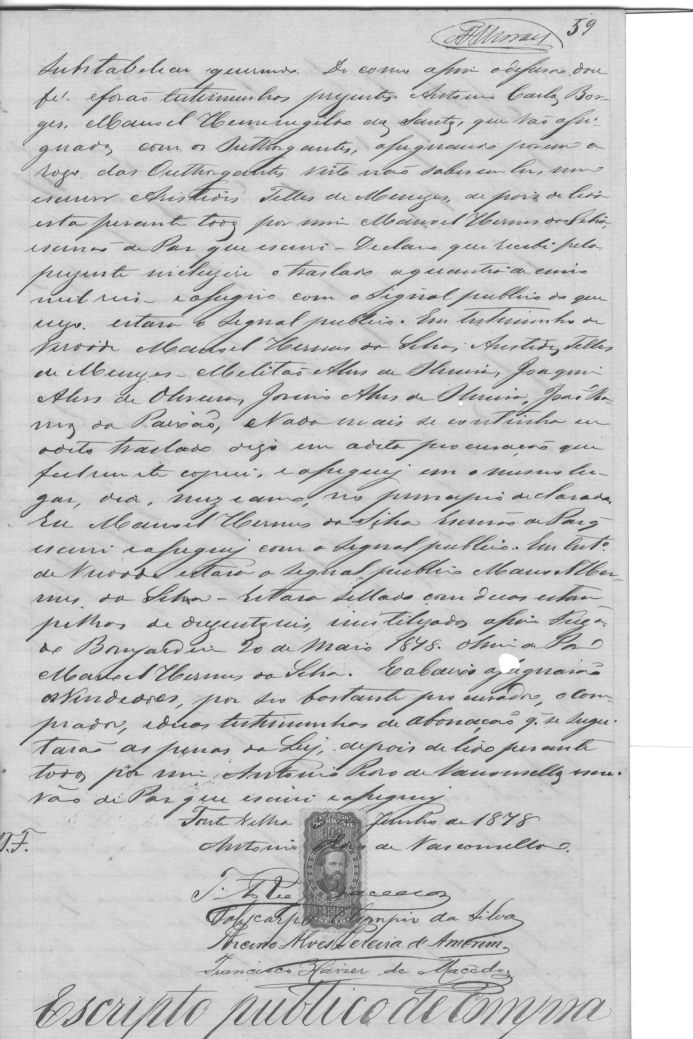 59
substabelecer querendo. De como assim o disserão dou
fé. e forão testimunhas prezentes Antonio Carlos Bor-
ges. Manoel Hermenegildo dos Santos, que vão assi-
gnados com os Outhorgantes, assignando porem a
rogo das Outhorgantes visto não saberem ler, nem
escrever Aristides Telles de Menezes, de pois de lida
esta perante todos por mim Manoel Hermes da Silva,
escrivão de Paz que escrevi - Declaro que recebi pela
prezente o traslado a quantia de cinco
mil reis - e assigno com o Signal publico de que
uzo. estava o Signal publico. Em testimunho de
Verdade Manoel Hermes da Silva, Aristides Telles
de Menezes - Melitão Alves de Joaquim
Alves de Oliveira, Alves de João
da Paixão, e Nada mais se continha em
o dito traslado digo em a dita procuração que
fielmente copiei, e assignei em o mesmo lu-
gar, dia, mez e anno, no principio declarado,
Eu Manoel Hermes da Silva Escrivão de Paz
escrevi e assignei com o Signal publico. Em testº
de Verdade estava o Signal publico Manoel Her-
mes da Silva - Estava Sellado com duas estam-
pilhas de duzentos reis, inutilizadas assim
de Bom Jardim 20 de Maio 1878. de Paz
Manoel Hermes da Silva. E abaixo assignarão
os Vendedores, por seo bastante procurador, o com-
prador, e duas testimunhas de abonação q. se sugei-
tarão as penas da Lei, depois de lido perante
todos por mim, Antonio de Vasconcellos escri-
vão de Paz que escrevi e assignei
Fonte Velha Junho de 1878
Antonio de Vasconcellos.
IMPERIO DO BRAZIL
Polycarpo Olympio da Silva
Alves Pereira de Amorim
Francisco Xavier de Macedo
Escripto publico de Compra